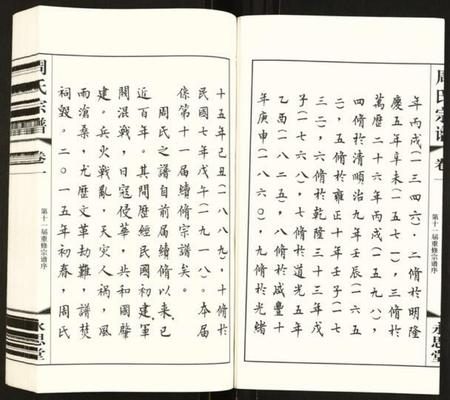 周氏宗谱
卷一
第十一届重修宗谱序
永思堂
年丙戌（一三四六），二修於明隆
慶五年辛未（一五七一），三修於
萬歷二十六年丙戌（一五九八），
四修於清順治九年壬辰（一六五
二），五修於雍正十年壬子（一七
三二），六修於乾隆三十三年戊
子（一七六八），七修於道光五年
乙酉（一八二五），八修於咸豐十
年庚申（一八六〇），九修於光緒
十五年己丑（一八八九），十修於
民國七年戊午（一九一八）。本届
係第十一届續修宗譜矣。
周氏之譜自前届續修以來已
近百年。其間歷經民國初建軍
閥混戰，日寇侵華，共和國肇
建。兵火戰亂，天災人禍，風
雨滄桑，尤歷文革劫難，譜焚
祠毁。二〇一五年初春，周氏
周氏宗譜
卷一
第十一届重修宗谱序
永思堂